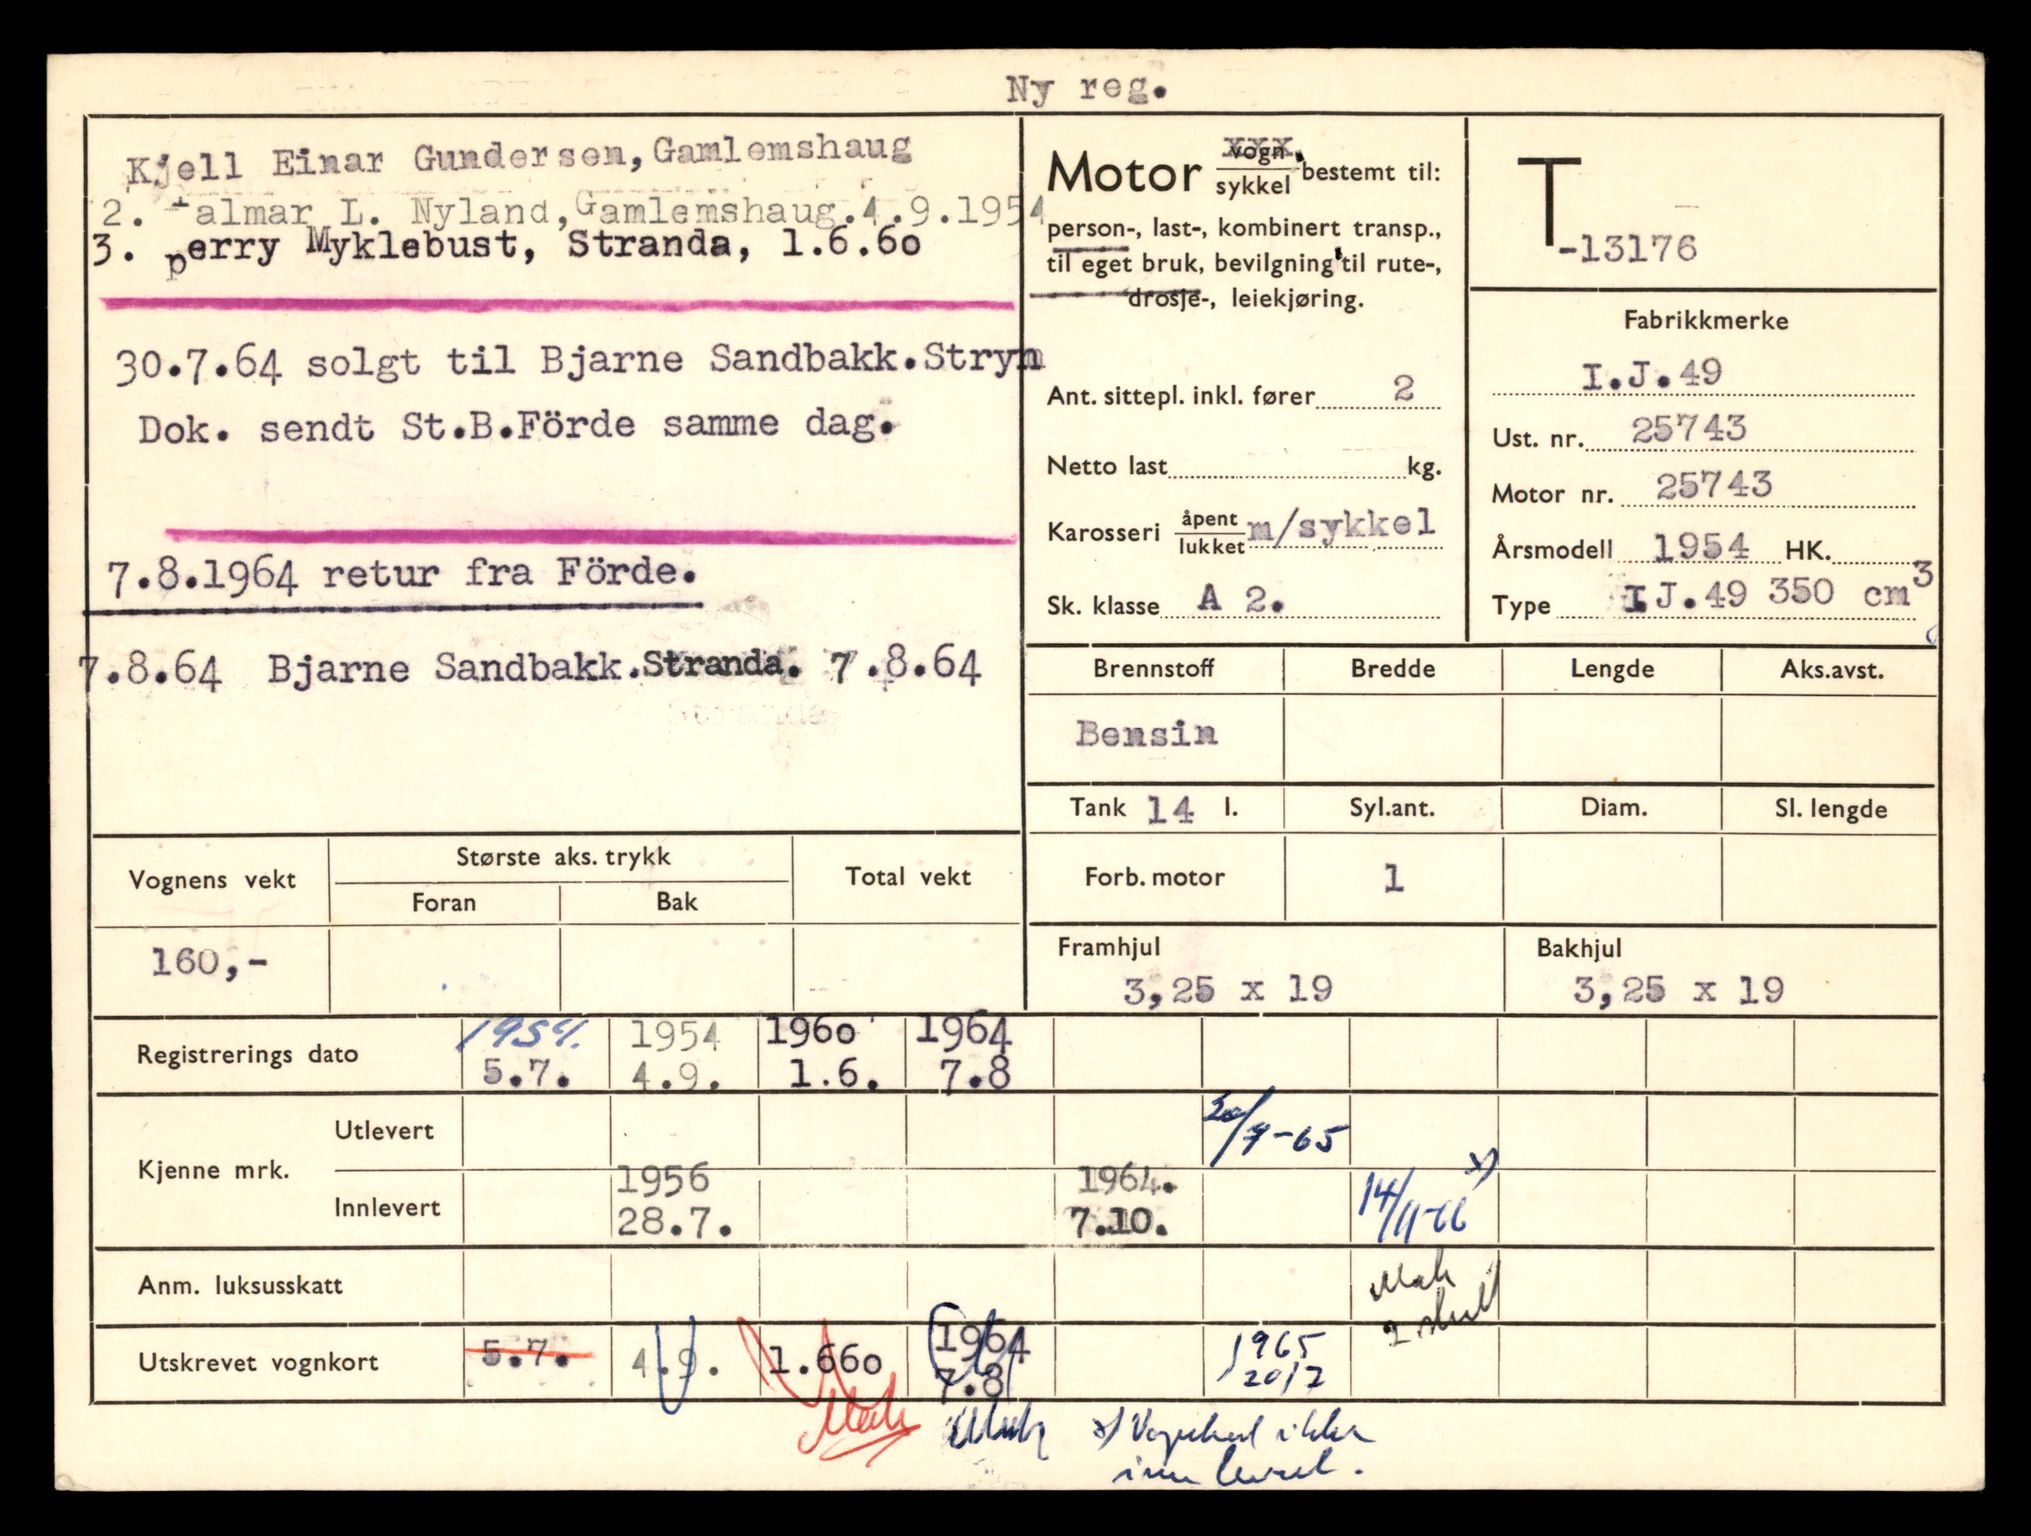 Ny reg.
Kjell Einar Gundersen, Gamlemshaug
2. almar L. Nyland, Gamlemshaug. 4.9.1954
3. perry Myklebust, Stranda, 1.6.60
30.7.64 solgt til Bjarne Sandbakk. Stryn
Dok. sendt St.B.Förde samme dag.
7.8.1964 retur fra Förde.
7.8.64 Bjarne Sandbakk. Stranda. 7.8.64
Motor vogn xxx. / sykkel bestemt til:
person-, last-, kombinert transp.,
til eget bruk, bevilgning til rute-,
drosje-, leiekjøring.
Ant. sittepl. inkl. fører 2
Netto last kg.
Karosseri åpent / lukket m/sykkel
Sk. klasse A 2.
T -13176
Fabrikkmerke
I.J.49
Ust. nr. 25743
Motor nr. 25743
Årsmodell 1954 HK.
Type I.J.49 350 cm3
Brennstoff Bredde Lengde Aks.avst.
Bensin
Tank 14 l. Syl.ant. Diam. Sl. lengde
Forb. motor 1
Framhjul Bakhjul
3,25 x 19 3,25 x 19
Vognens vekt Største aks. trykk Total vekt
Foran Bak
160,-
Registrerings dato 1954. 5.7. 1954 4.9. 1960 1.6. 1964 7.8
Kjenne mrk. Utlevert 20/7-65
Innlevert 1956 28.7. 1964. 7.10. 14/11-66 x)
Anm. luksusskatt
Utskrevet vognkort 5.7. 4.9. 1.660 1964 7.8 1965 20/7
x) Vognkort ikke
innlevert.